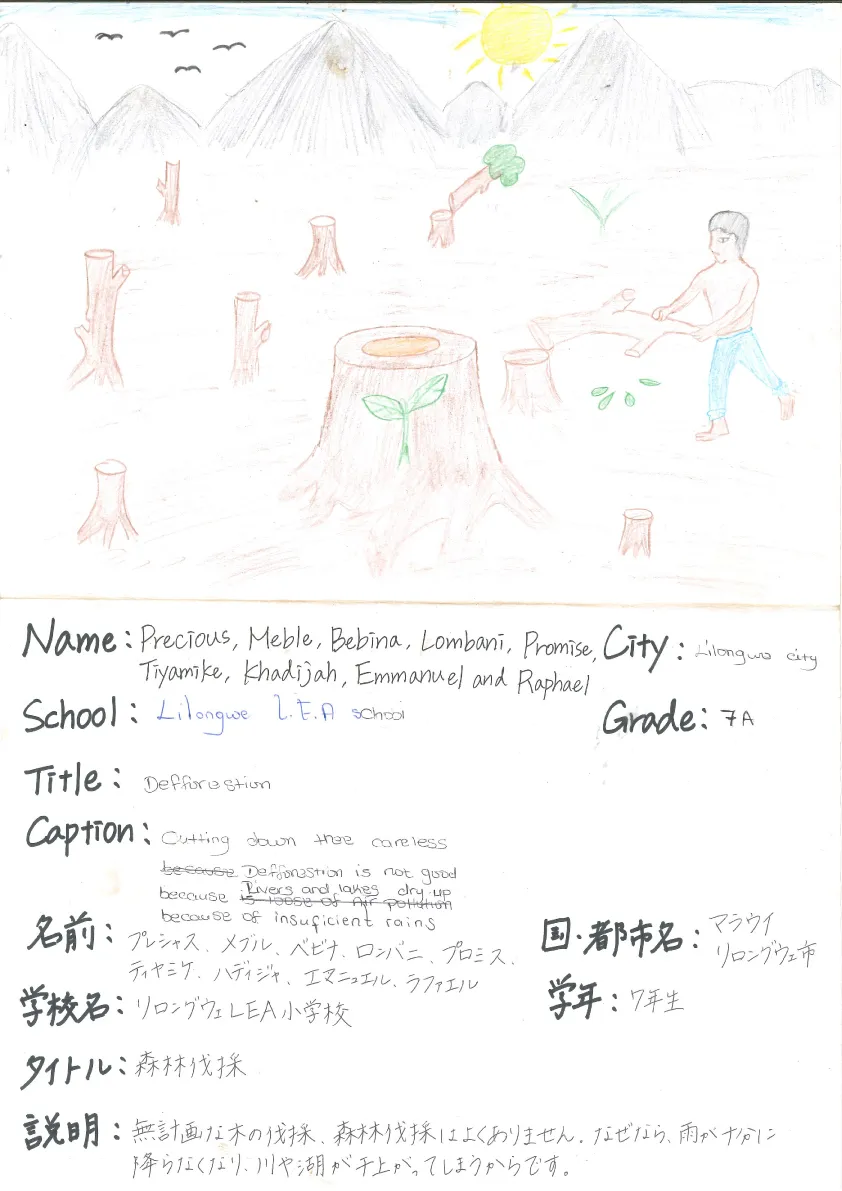 Name: Precious, Meble, Bebina, Lombani, Promise,
Tiyamike, Khadijah, Emmanuel and Raphael
City: Lilongwe city
School: Lilongwe L.E.A school
Grade: 7A
Title: Defforestion
Caption: Cutting down thee careless
because Defforestion is not good
because Rivers and lakes dry up
is loose of Air pollution
because of insuficient rains
名前: プレシャス、メブル、ベビナ、ロンバニ、プロミス、
ティヤミケ、ハディジャ、エマニュエル、ラファエル
国・都市名: マラウイ
リロングウェ市
学校名: リロングウェLEA小学校
学年: 7年生
タイトル: 森林伐採
説明: 無計画な木の伐採、森林伐採はよくありません。なぜなら、雨が十分に
降らなくなり、川や湖が干上がってしまうからです。